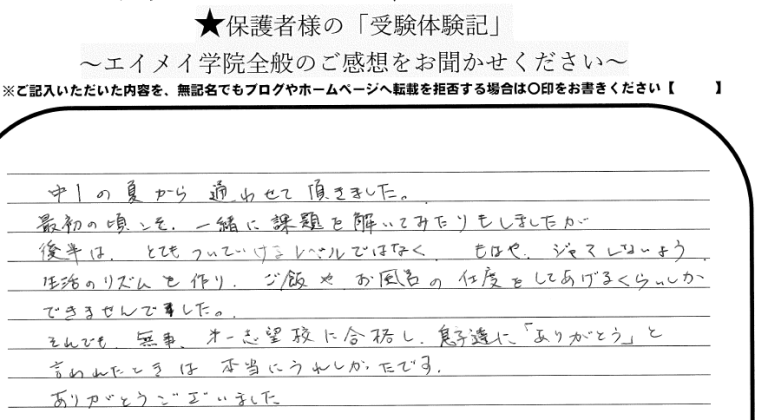 ★保護者様の「受験体験記」
～エイメイ学院全般のご感想をお聞かせください～
※ご記入いただいた内容を、無記名でもブログやホームページへ転載を拒否する場合は〇印をお書きください【　　】
中1の夏から通わせて頂きました。
最初の頃こそ、一緒に課題を解いてみたりもしましたが
後半は、とてもついていけるレベルではなく、もはや、ジャマしないよう、
生活のリズムを作り、ご飯やお風呂の仕度をしてあげるくらいしか
できませんでした。
それでも、無事、第一志望校に合格し、息子達に「ありがとう」と
言われたときは本当にうれしかったです。
ありがとうございました